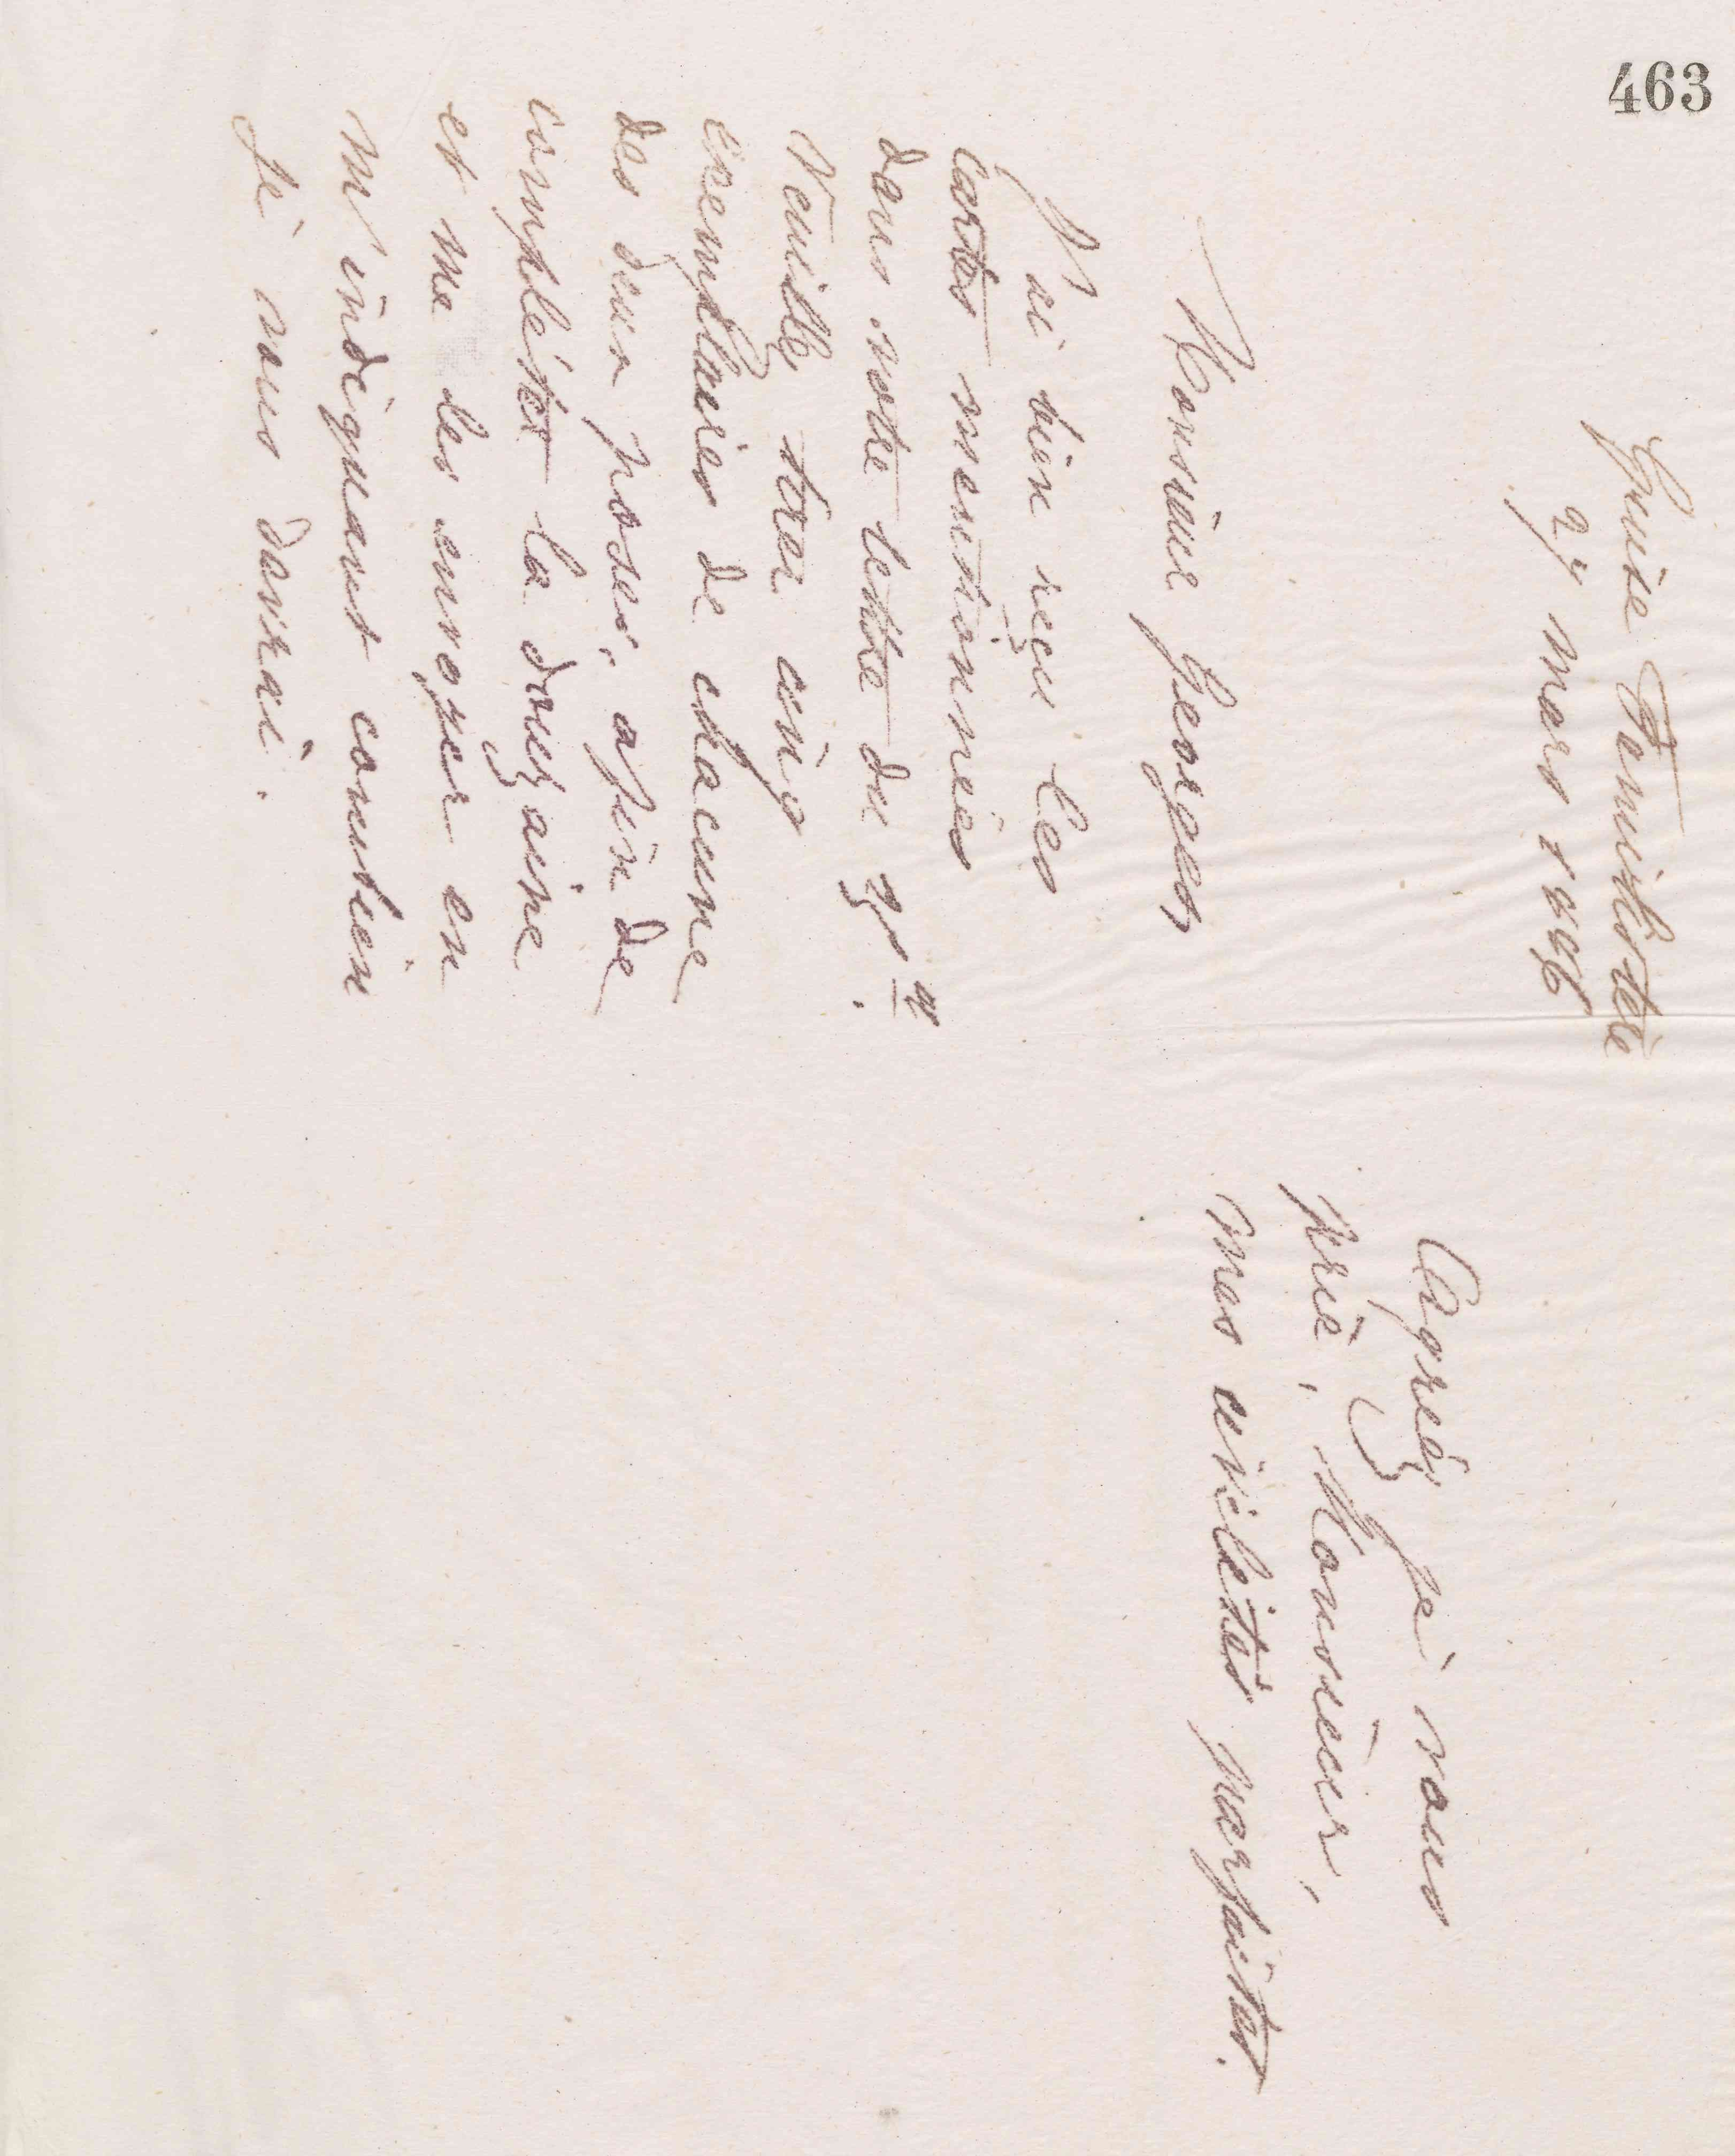 463
Guise Familistère
27 mars 1896
Monsieur Georges
J'ai bien reçu les
cartes mentionnées
dans votre lettre du
Veuillez tirer cinq
exemplaires de chacune
des deux poses, afin de
compléter la douzaine
et me les envoyer en
m'indiquant combien
je vous devrai.
Agréez je vous
prie, Monsieur,
mes civilités parfaites.